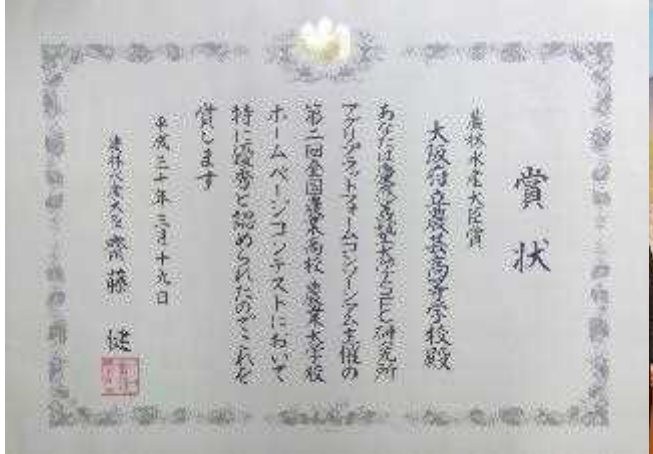 賞状
農林水産大臣賞
大阪府立農芸高等学校殿
あなたは慶應義塾大学SFC研究所
アグリプラットフォームコンソーシアム主催の
第二回全国農業高校・農業大学校
ホームページコンテストにおいて
特に優秀と認められたのでこれを
賞します
平成三十年三月十九日
農林水産大臣 齋藤 健